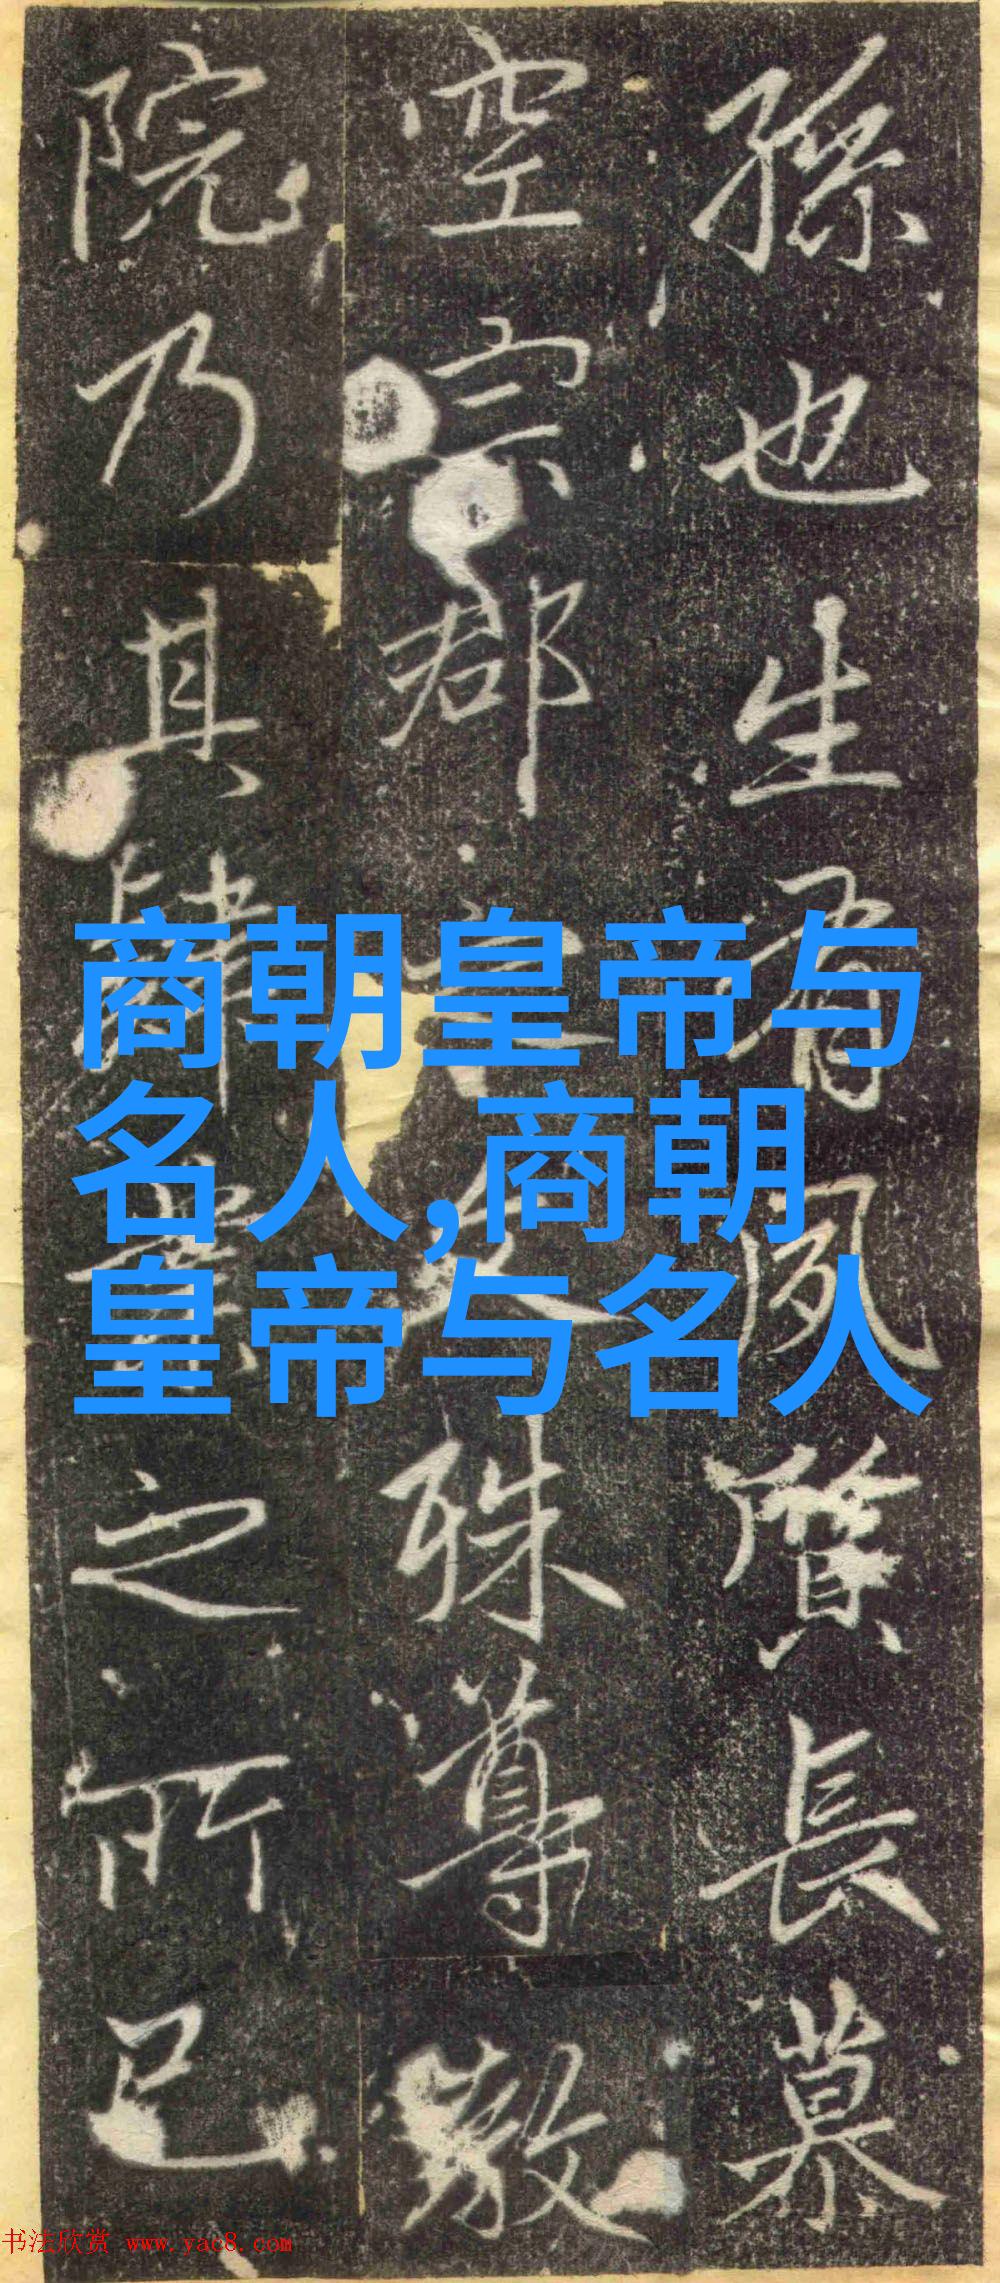 孫也生有夙質長慕
空宗郡文殊尊
院乃其肆業之所已
商朝皇帝与
名人,商朝
皇帝与名人
书法欣赏 www.yac8.com